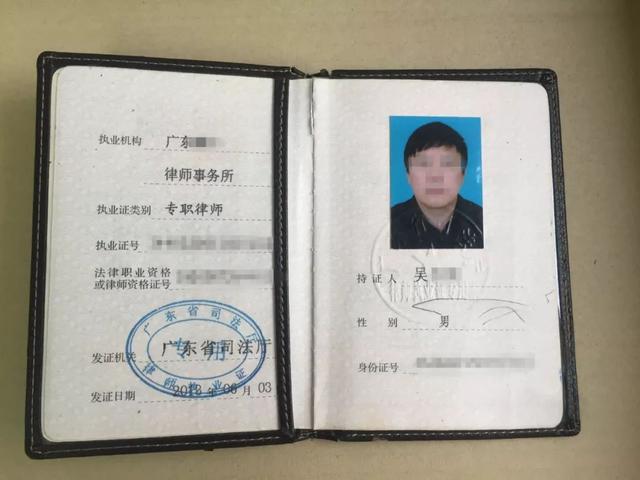 执业机构 广东
律师事务所
执业证类别 专职律师
执业证号
法律职业资格
或律师资格证号
发证机关 广东省司法厅
发证日期 月 03
广东省司法厅
专用
律师执业证
持证人 吴
性别 男
身份证号